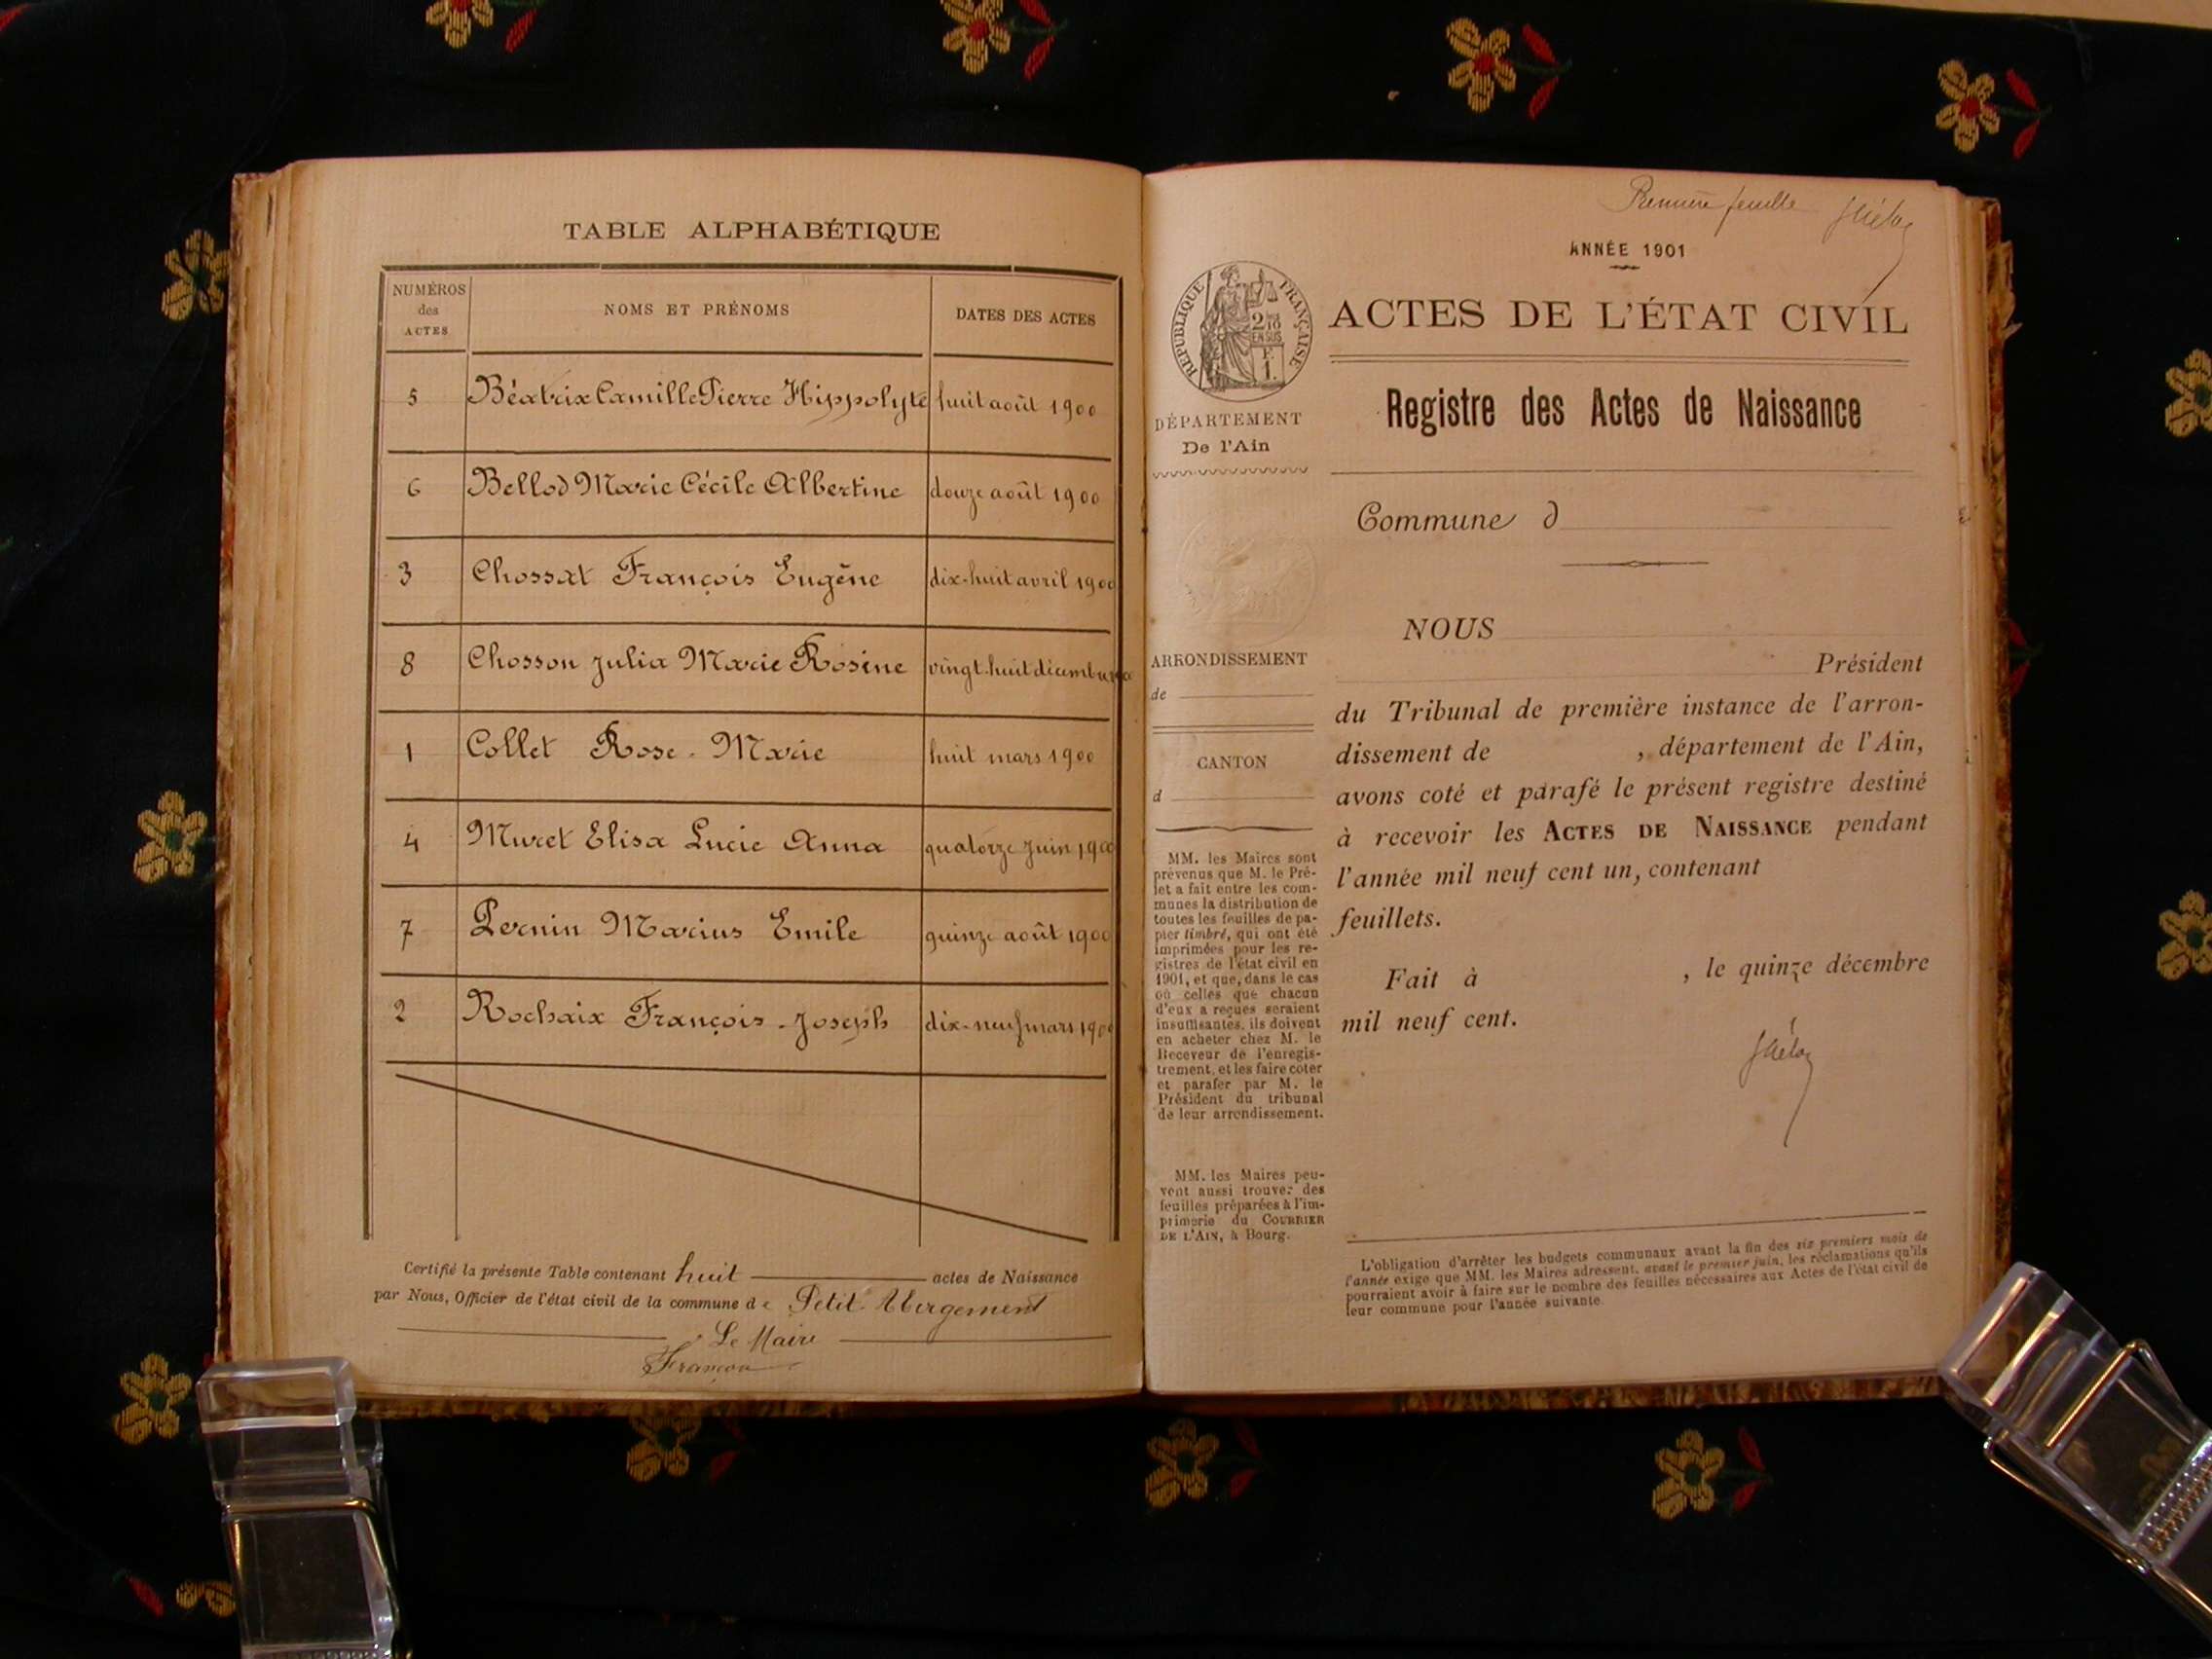 TABLE ALPHABÉTIQUE
NUMÉROS des ACTES
NOMS ET PRÉNOMS
DATES DES ACTES
5 Béatrix Camille Pierre Hippolyte huit août 1900
6 Bellod Marie Cécile Albertine douze août 1900
3 Chossat François Eugène dix-huit avril 1900
8 Chosson Julia Marie Rosine vingt-huit décembre
1 Collet Rose-Marie huit mars 1900
4 Muret Elisa Lucie Anna quatorze juin 1900
7 Pernin Marius Emile quinze août 1900
2 Rochaix François-Joseph dix-neuf mars 1900
Certifié la présente Table contenant huit actes de Naissance
par Nous, Officier de l'état civil de la commune de Petit Abergement
Le Maire
Françon
Première feuille
ANNÉE 1901
RÉPUBLIQUE FRANÇAISE
2/10
EN SUS
F.
1.
DÉPARTEMENT
De l'Ain
ARRONDISSEMENT
de
CANTON
d
MM. les Maires sont
prévenus que M. le Pré-
fet a fait entre les com-
munes la distribution de
toutes les feuilles de pa-
pier timbré, qui ont été
imprimées pour les re-
gistres de l'état civil en
1901, et que, dans le cas
où celles que chacun
d'eux a reçues seraient
insuffisantes, ils doivent
en acheter chez M. le
Receveur de l'enregis-
trement, et les faire coter
et parafer par M. le
Président du tribunal
de leur arrondissement.
MM. les Maires peu-
vent aussi trouver des
feuilles préparées à l'im-
primerie du COURRIER
DE L'AIN, à Bourg.
ACTES DE L'ÉTAT CIVIL
Registre des Actes de Naissance
Commune d
NOUS
Président
du Tribunal de première instance de l'arron-
dissement de , département de l'Ain,
avons coté et parafé le présent registre destiné
à recevoir les ACTES DE NAISSANCE pendant
l'année mil neuf cent un, contenant
feuillets.
Fait à , le quinze décembre
mil neuf cent.
L'obligation d'arrêter les budgets communaux avant la fin des six premiers mois de
l'année exige que MM. les Maires adressent, avant le premier juin, les réclamations qu'ils
pourraient avoir à faire sur le nombre des feuilles nécessaires aux Actes de l'état civil de
leur commune pour l'année suivante.